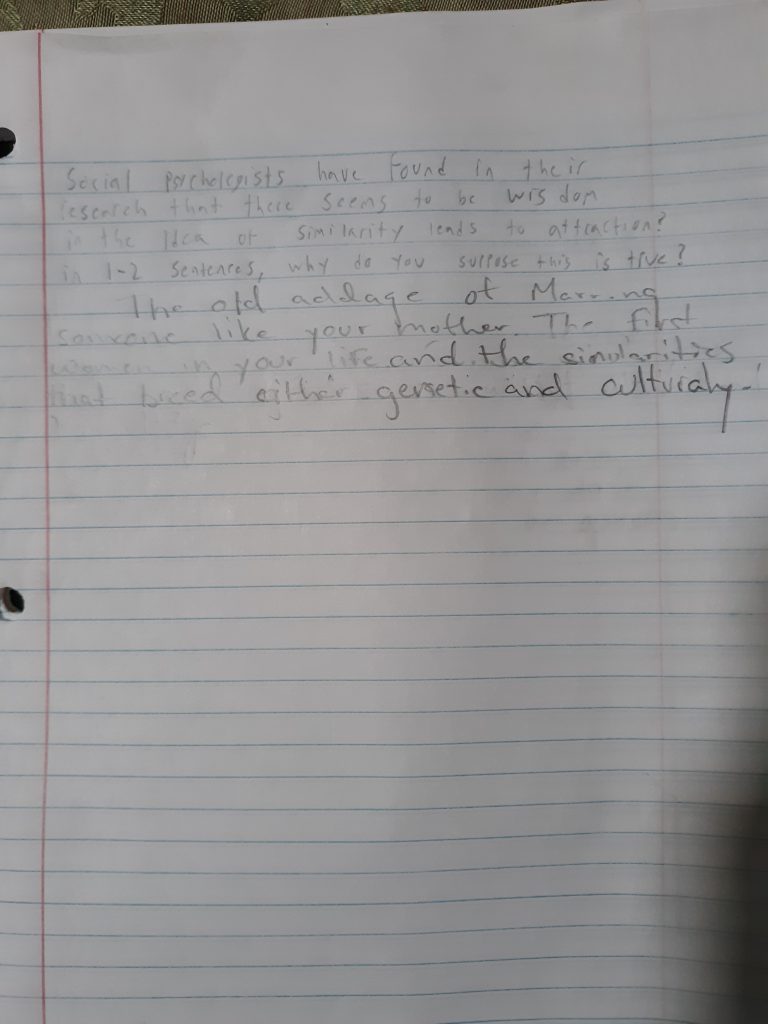 Social Psychologists have found in their
research that there seems to be wisdom
in the Idea of similarity leads to attraction?
in 1-2 sentences, why do you suppose this is true?
The old addage of Marring
someone like your mother. The first
women in your life and the simularities
that breed either genetic and culturaly.